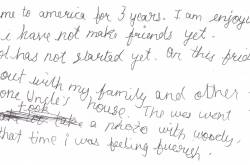 me to america for 3 years. I am enjoye
i have not make friends yet.
ol has not started yet. On this frid
out with my family and other
one Uncle's house. The was went
took
take a photo with woody.
that time i was feeling fuerish.